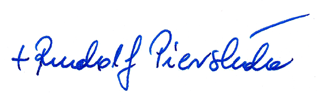 + Rudolf Pierskała